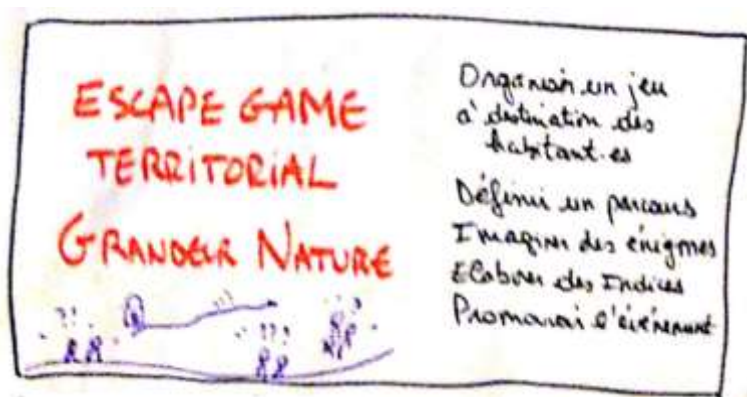 ESCAPE GAME
TERRITORIAL
GRANDEUR NATURE
Organiser un jeu
à destination des
habitant.es
Définir un parcours
Imaginer des énigmes
Elaborer des Indices
Promouvoir l'événement